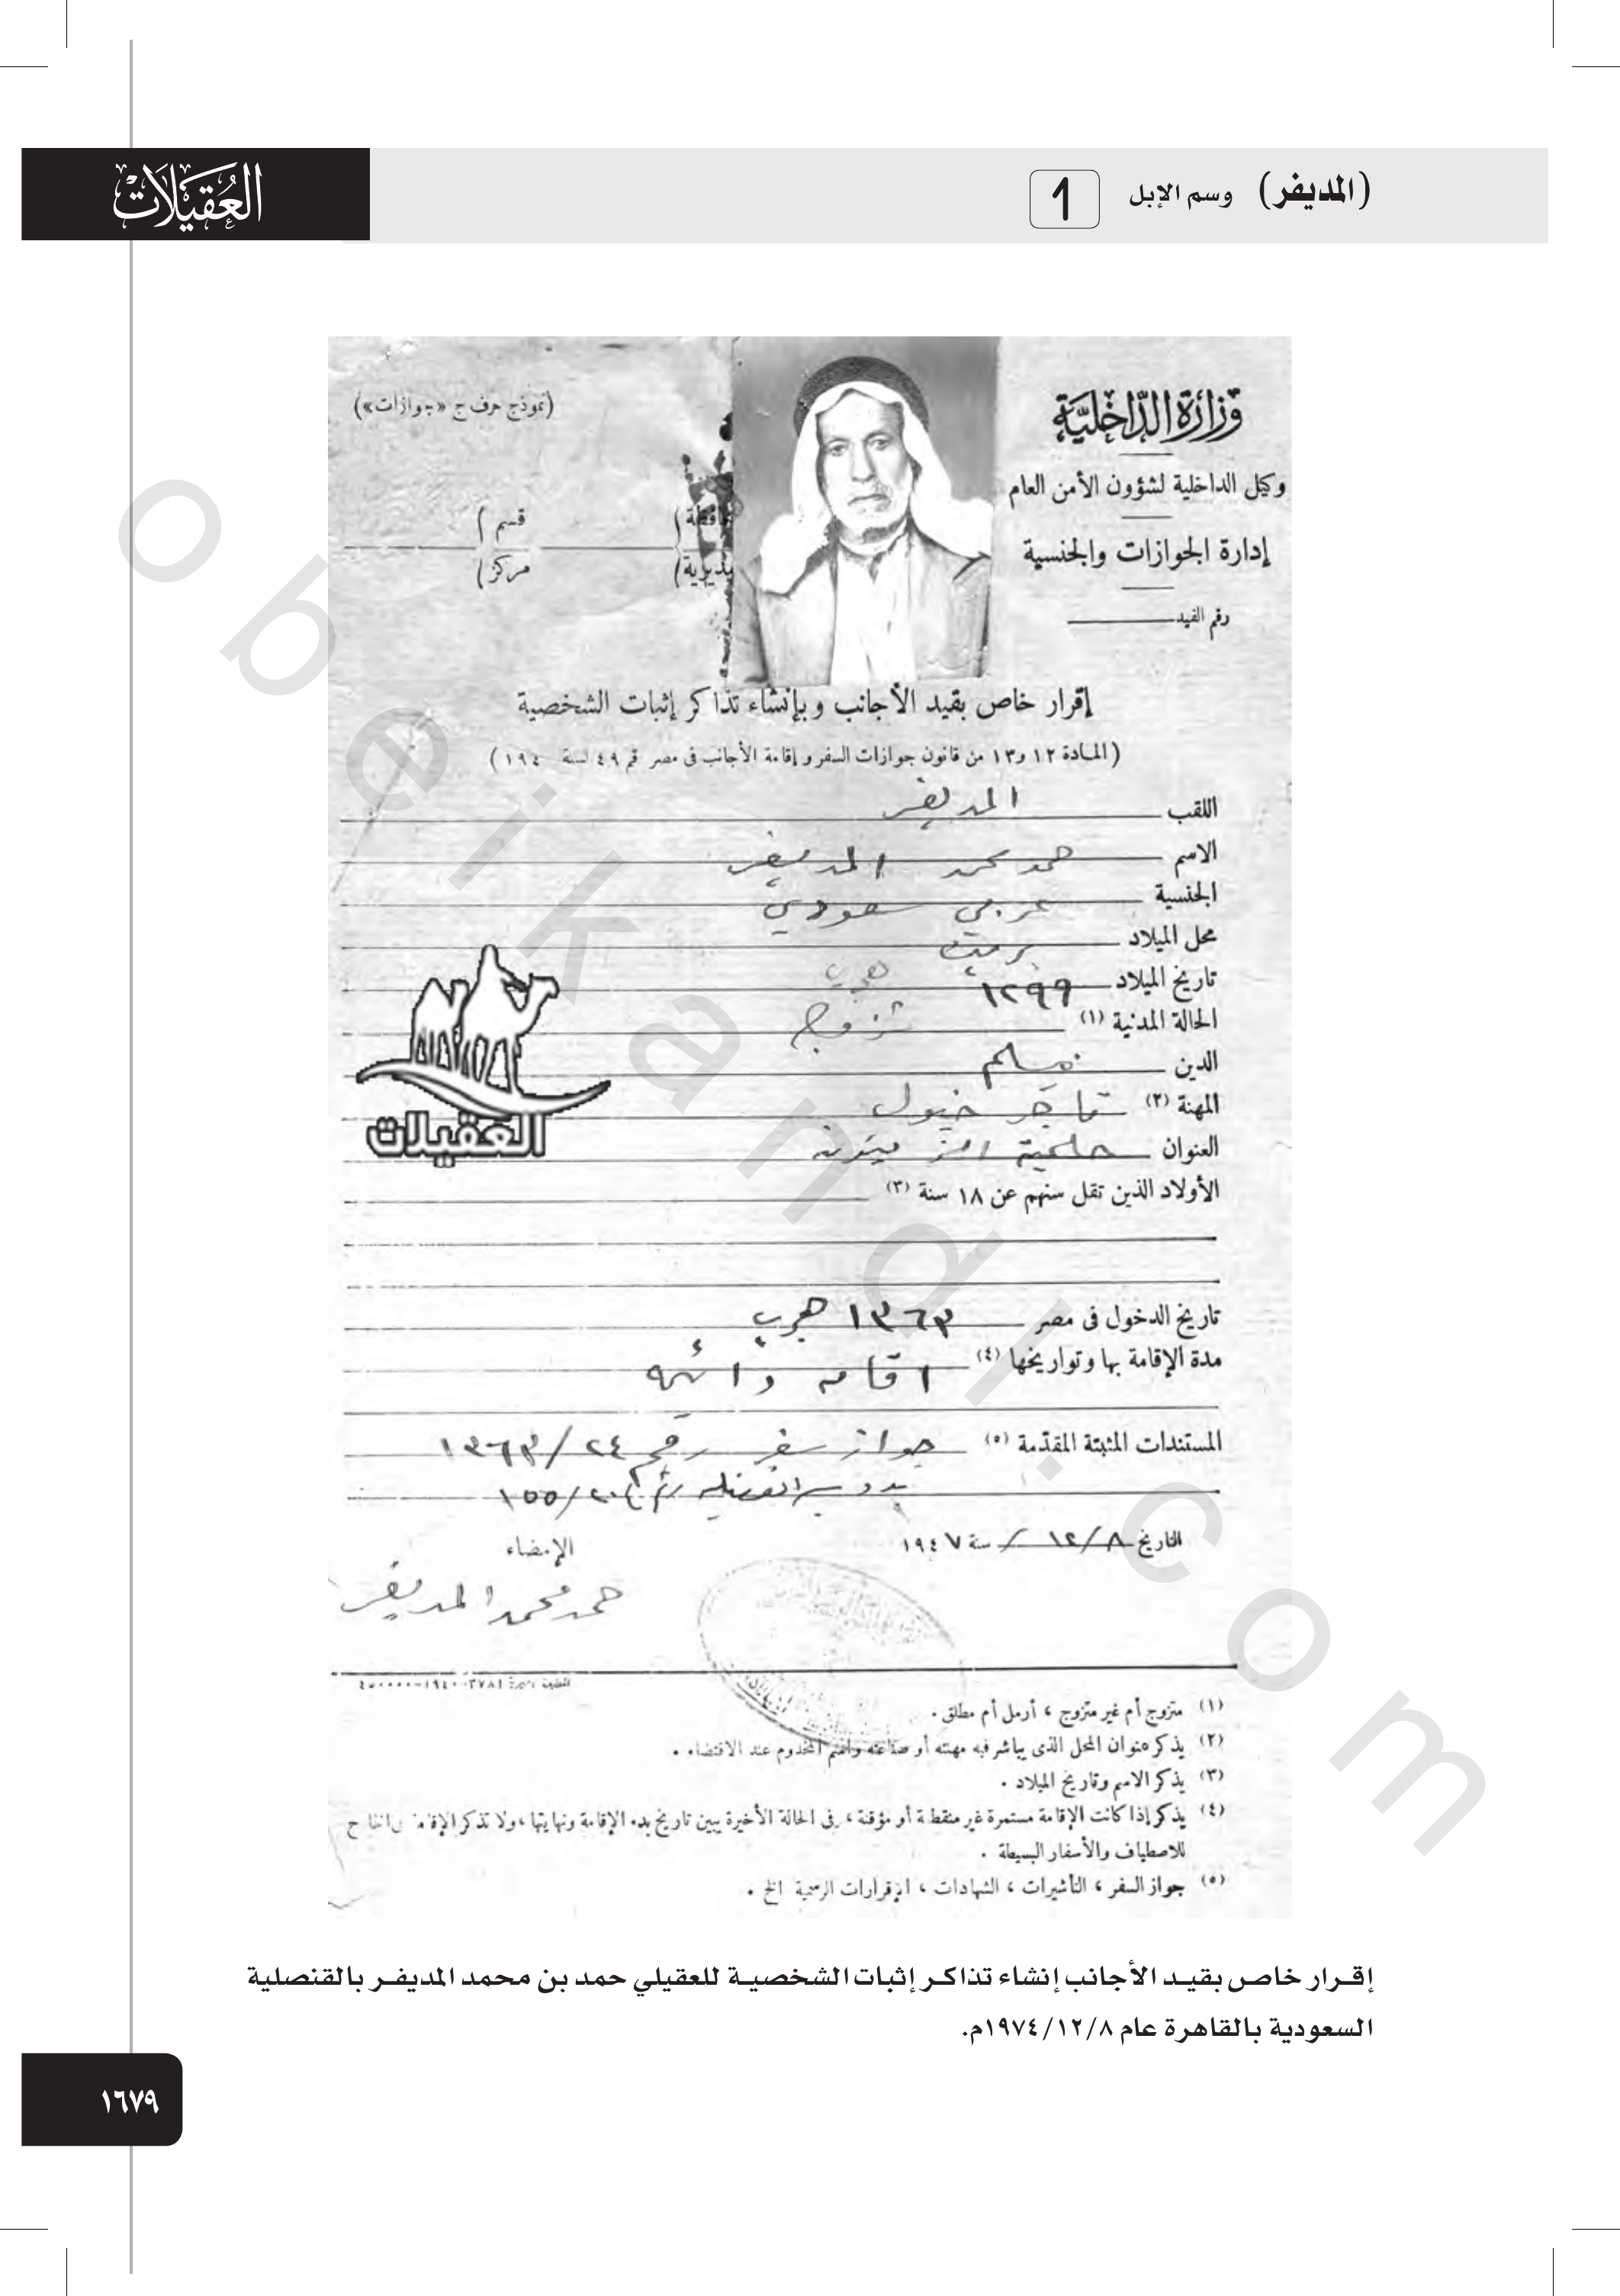 (المديفر) وسم الإبل 1
العقيلات
وزارة الداخلية
(نموذج حرف ج «جوازات»)
وكيل الداخلية لشؤون الأمن العام
محافظة) قسم)
مديرية) مركز)
إدارة الجوازات والجنسية
رقم القيد
إقرار خاص بقيد الأجانب وبإنشاء تذاكر إثبات الشخصية
(المادة ١٢ و١٣ من قانون جوازات السفر وإقامة الأجانب فى مصر رقم ٤٩ لسنة ١٩٤٠)
اللقب المديفر
الاسم حمد محمد المديفر
الجنسية عربي سعودي
محل الميلاد
تاريخ الميلاد ١٢٩٩ هجري
الحالة المدنية (١) متزوج
الدين مسلم
المهنة (٢) تاجر خيول
العنوان حلمية الزيتون
الأولاد الذين تقل سنهم عن ١٨ سنة (٣)
تاريخ الدخول فى مصر ١٣٦٣ هجري
مدة الإقامة بها وتواريخها (٤) اقامه دائمه
المستندات المثبتة المقدّمة (٥) جواز سفر رقم ٢٤/١٣٦٣
التاريخ ٨/١٢/ سنة ١٩٤٧
الإمضاء
حمد محمد المديفر
العقيلات
(١) متزوج أم غير متزوج ، أرمل أم مطلق .
(٢) يذكر عنوان المحل الذى يباشر فيه مهنته أو صناعته واسم المخدوم عند الاقتضاء .
(٣) يذكر الاسم وتاريخ الميلاد .
(٤) يذكر إذا كانت الإقامة مستمرة غير منقطعة أو مؤقتة ، وفى الحالة الأخيرة يبين تاريخ بدء الإقامة ونهايتها ، ولا تذكر الإقامة فى الخارج
للاصطياف والأسفار البسيطة .
(٥) جواز السفر ، التأشيرات ، الشهادات ، الإقرارات الرسمية الخ .
إقرار خاص بقيد الأجانب إنشاء تذاكر إثبات الشخصية للعقيلي حمد بن محمد المديفر بالقنصلية
السعودية بالقاهرة عام ١٩٧٤/١٢/٨م.
١٦٧٩
obeikandl.com